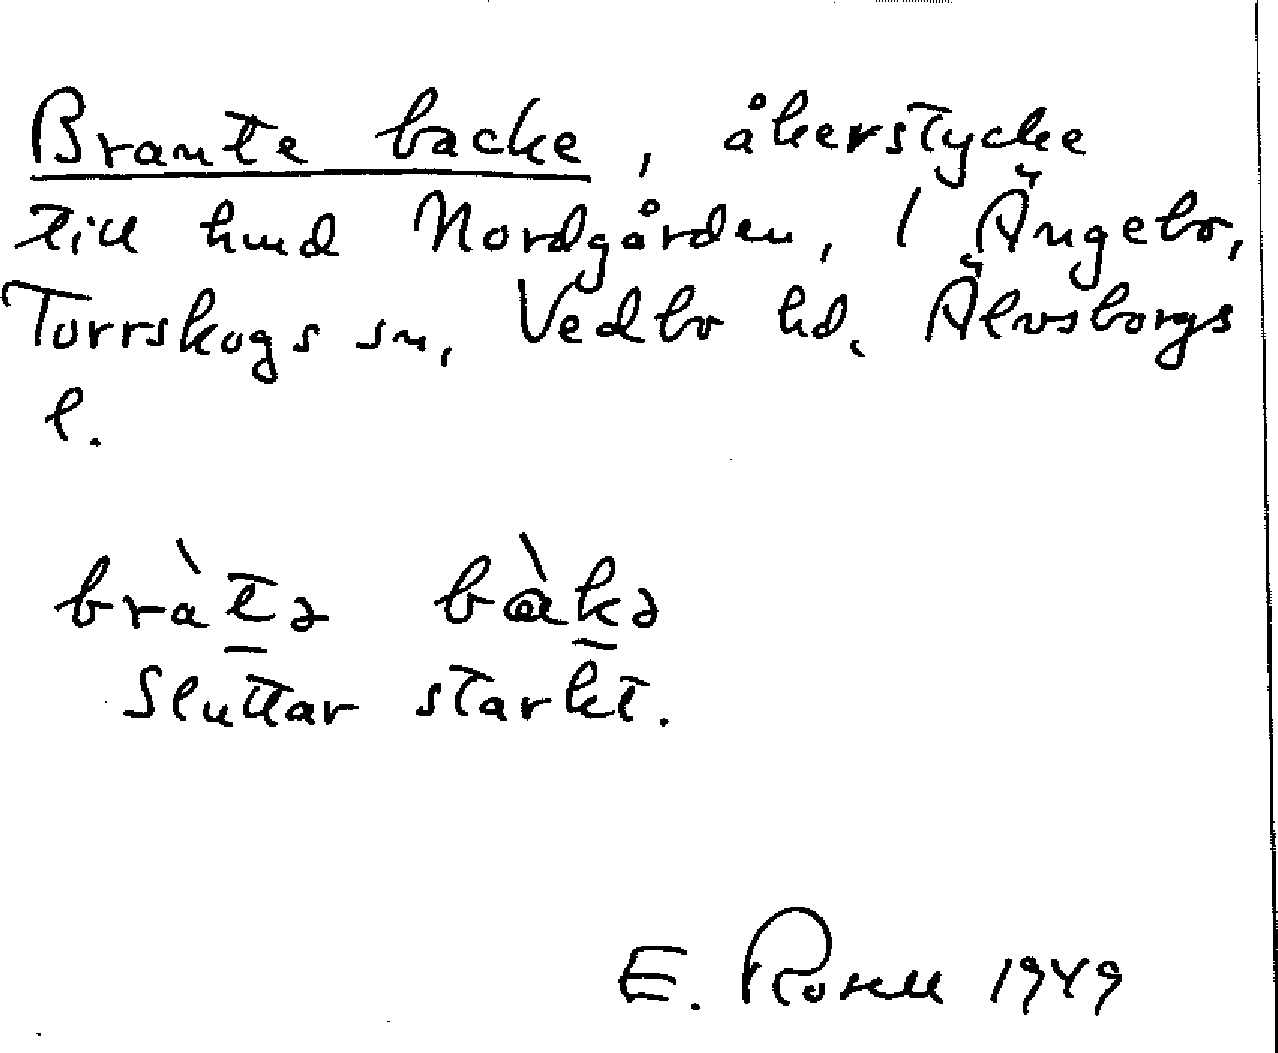 Brante backe, åkerstycke
till hmd Nordgården, 1 Ängebo,
Torrskogs sn, Vedbo hd. Älvsborgs
l.
bràtə bàkə
Sluttar starkt.
E. Rosell 1949